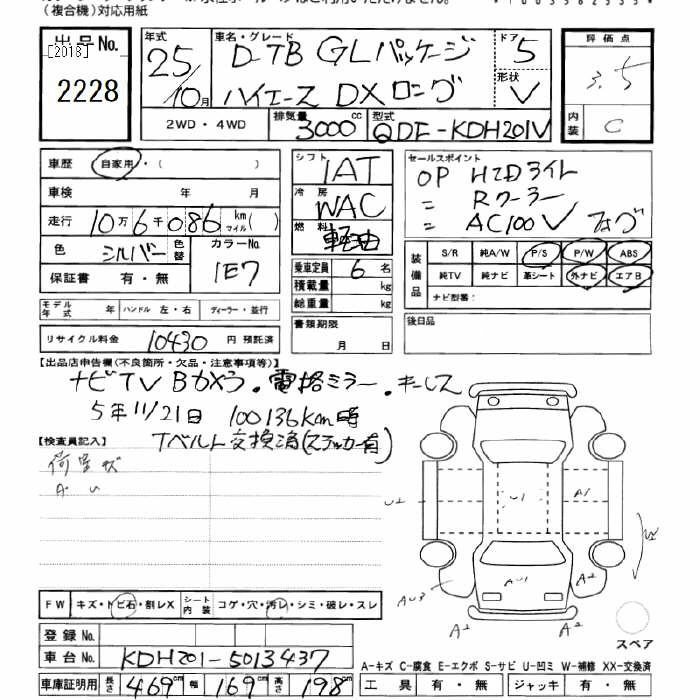 (複合機)対応用紙
出品No. [2013] 2228
年式 25/10月
車名・グレード D-TB GLパッケージ ハイエース DX ロング
ドア 5
形状 V
評価点 3.5
内装 C
2WD・4WD
排気量 3000 cc
型式 QDF-KDH201V
車歴 自家用・( )
車検 年 月
走行 10万6千086 km マイル( )
色 シルバー 色替 カラーNo. 1E7
保証書 有・無
シフト IAT
冷房 WAC
燃料 軽油
乗車定員 6 名
積載量 kg
総重量 kg
セールスポイント
OP HIDライト
〃 Rクーラー
〃 AC100V
装備品 S/R 純A/W P/S P/W ABS
純TV 純ナビ 革シート 外ナビ エアB
ナビ型番:
モデル年式 年 ハンドル 左・右 ディーラー・並行
リサイクル料金 10430 円 預託済
書類期限 月 日
後日品
【出品店申告欄(不良箇所・欠品・注意事項等)】
ナビTV Bカメラ・電格ミラー・キーレス
5年11/21日 100136km時
Tベルト交換済(ステッカー有)
【検査員記入】
荷室状
A・U
U1 U1 A1
AU3 AU1 A2
A2 A2
FW キズ・トビ石・割レX シート内装 コゲ・穴・汚レ・シミ・破レ・スレ
登録No.
車台No. KDH201-5013437
車庫証明用 長さ 469cm 幅 169cm 高さ 198cm
スペア
A-キズ C-腐食 E-エクボ S-サビ U-凹ミ W-補修 XX-交換済
工具 有・無 ジャッキ 有・無